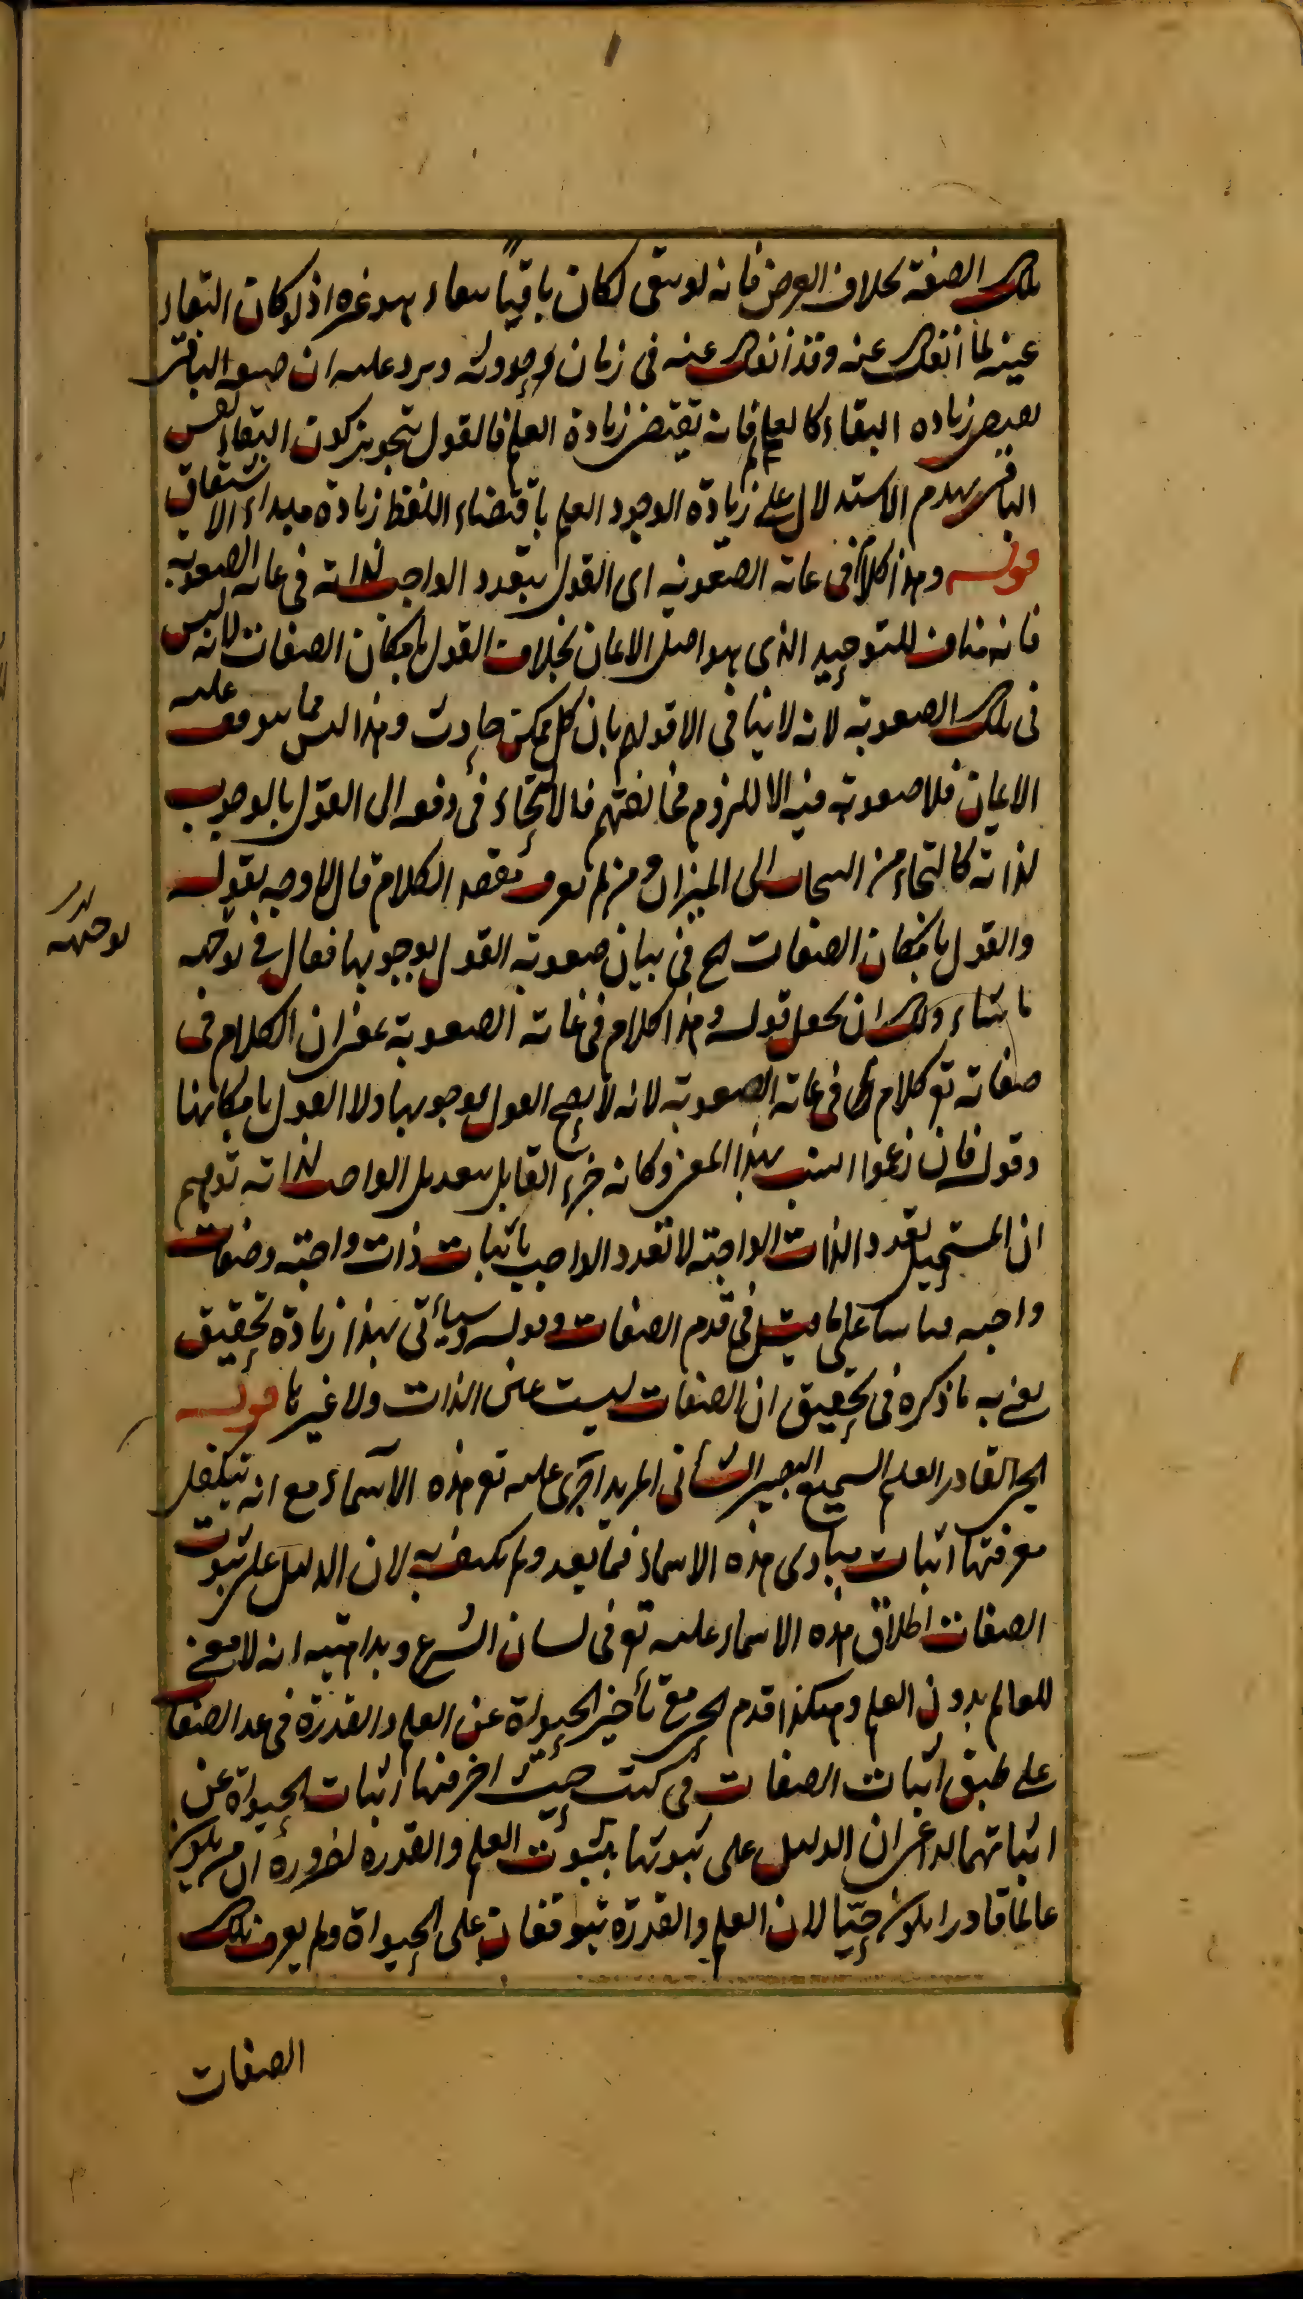 تلك الصفة بخلاف العرض فانه لو بقى لكان باقيا ببقاء هو غيره اذ لو كان البقاء
عينه لما انفك عنه وقد انفك عنه فى زمان وجوده ويرد عليه ان صيغة الباقى
يقتضى زيادة البقاء كالعلم فانه تقتضى زيادة العلم فالقول بتجويز كون البقاء نفس
الباقى يهدم الاستدلال على زيادة الوجود العلم باقتضاء اللفظ زيادة مبداء الاشتقاق
قوله وهذا كلام فى غاية الصعوبة اى القول بتعدد الواجب لذاته فى غاية الصعوبة
فانه مناف للتوحيد الذى هو اصل الايمان بخلاف القول بامكان الصفات لانه ليس
فى تلك الصعوبة لانه لا ينافى الا قولهم بان كل ممكن حادث وهذا ليس مما يتوقف عليه
الايمان فلا صعوبة فيه الا للزوم مخالفتهم فالالتجاء فى دفعه الى القول بالوجوب
لذاته كالتجاء من السحاب الى الميزاب ومن لم يعرف مقصد الكلام قال لا وجه لقوله
والقول بامكان الصفات الخ فى بيان صعوبة القول بوجوبها فقال فى توجيه
ما شاء ولك ان تجعل قوله وهذا كلام فى غاية الصعوبة بمعنى ان الكلام فى
صفاته تع كلام فى غاية الصعوبة لانه لا يصح القول بوجوبها ولا القول بامكانها
وقوله فان زعموا انسب بهذا المعنى وكانه جرء القائل بتعديل الواجب لذاته توهم
ان المستحيل تعدد الذات الواجبة لا تعدد الواجب باثبات ذات واجبة وصفات
واجبة قياسا على ما قيل فى قدم الصفات وقوله وسيأتى لهذا زيادة تحقيق
يعنى به ما ذكره فى تحقيق ان الصفات ليست عين الذات ولا غيرها قوله
الحى القادر العليم السميع البصير الشائى المريد اجرى عليه تع هذه الاسماء مع انه يتكفل
معرفتها اثبات مبادى هذه الاسماء فيما بعد ولم يكتف به لان الدليل على ثبوت
الصفات اطلاق هذه الاسماء عليه تع فى لسان الشرع وبداهته انه لا معنى
للعالم بدون العلم وهكذا قدم الحى مع تأخير الحيوة عن العلم والقدرة فى عد الصفات
على طبق اثبات الصفات فى كتب حيث اخر فيها اثبات الحيوة عن
اثباتهما لداعى ان الدليل على ثبوتها بثبوت العلم والقدرة لضرورة ان من يكون
عالما قادرا يكون حيا لان العلم والقدرة يتوقفان على الحيوة ولم يعرف تلك
الصفات
توجيهه